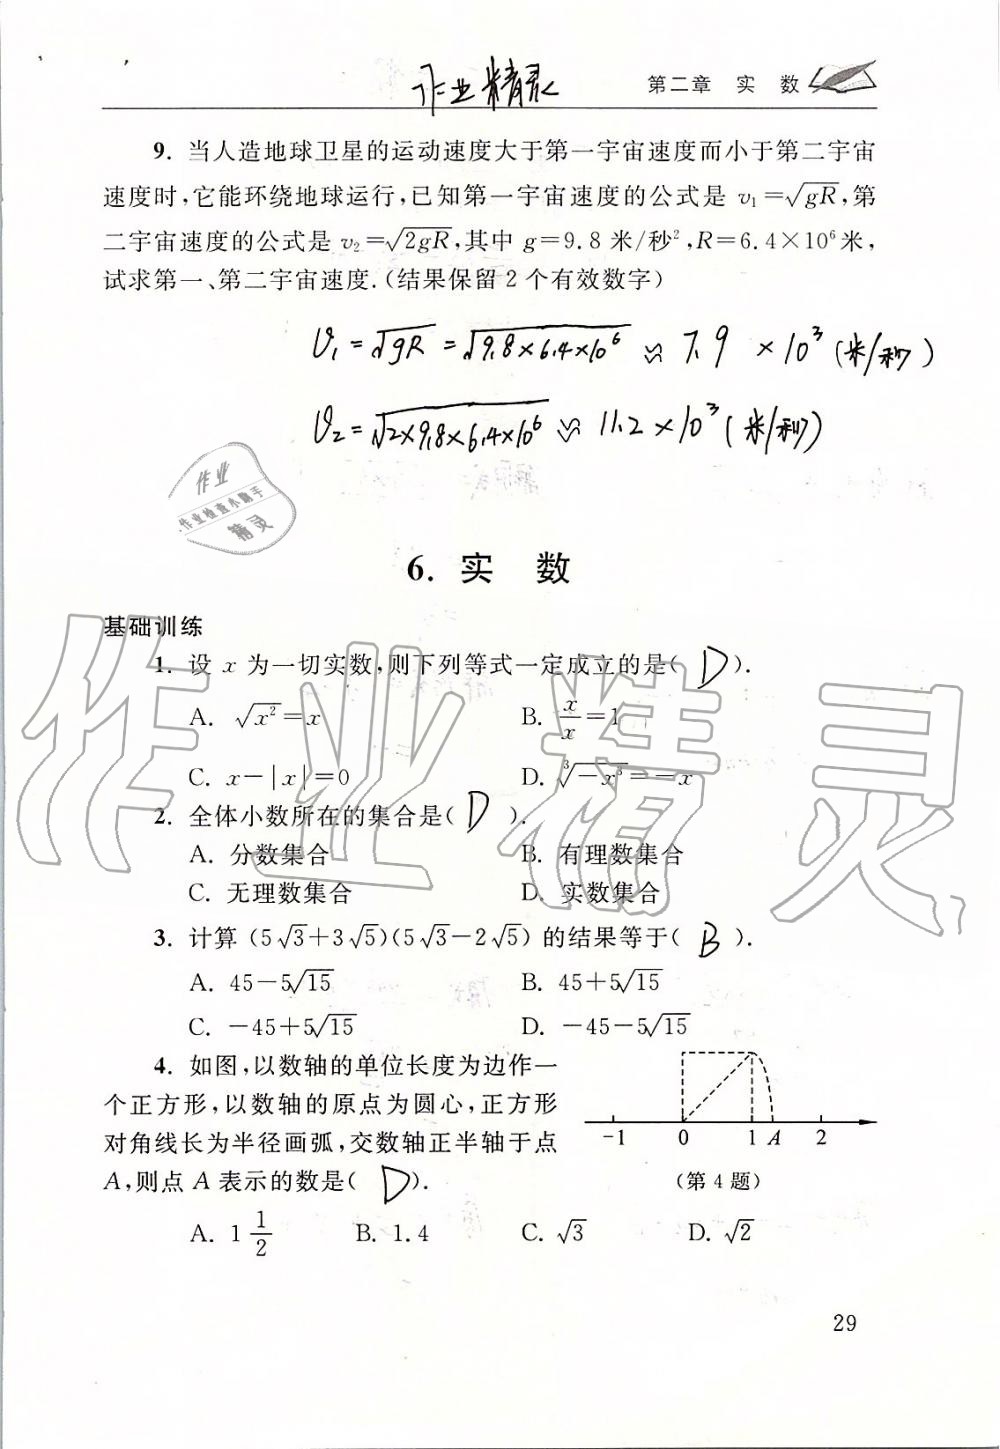 作业精灵
第二章 实 数
9. 当人造地球卫星的运动速度大于第一宇宙速度而小于第二宇宙
速度时,它能环绕地球运行,已知第一宇宙速度的公式是 v₁=√gR,第
二宇宙速度的公式是 v₂=√2gR,其中 g=9.8 米/秒²,R=6.4×10⁶米,
试求第一、第二宇宙速度.(结果保留 2 个有效数字)
v₁=√gR=√9.8×6.4×10⁶≈7.9×10³(米/秒)
v₂=√2×9.8×6.4×10⁶≈11.2×10³(米/秒)
作业
作业检查小助手
精灵
6. 实 数
基础训练
1. 设 x 为一切实数,则下列等式一定成立的是( D ).
A. √x²=x B. x/x=1
C. x-|x|=0 D. ³√-x³=-x
2. 全体小数所在的集合是( D ).
A. 分数集合 B. 有理数集合
C. 无理数集合 D. 实数集合
3. 计算 (5√3+3√5)(5√3-2√5) 的结果等于( B ).
A. 45-5√15 B. 45+5√15
C. -45+5√15 D. -45-5√15
4. 如图,以数轴的单位长度为边作一
个正方形,以数轴的原点为圆心,正方形
对角线长为半径画弧,交数轴正半轴于点
A,则点 A 表示的数是( D ).
-1 0 1 A 2
(第 4 题)
A. 1 1/2 B. 1.4 C. √3 D. √2
29
作业精灵